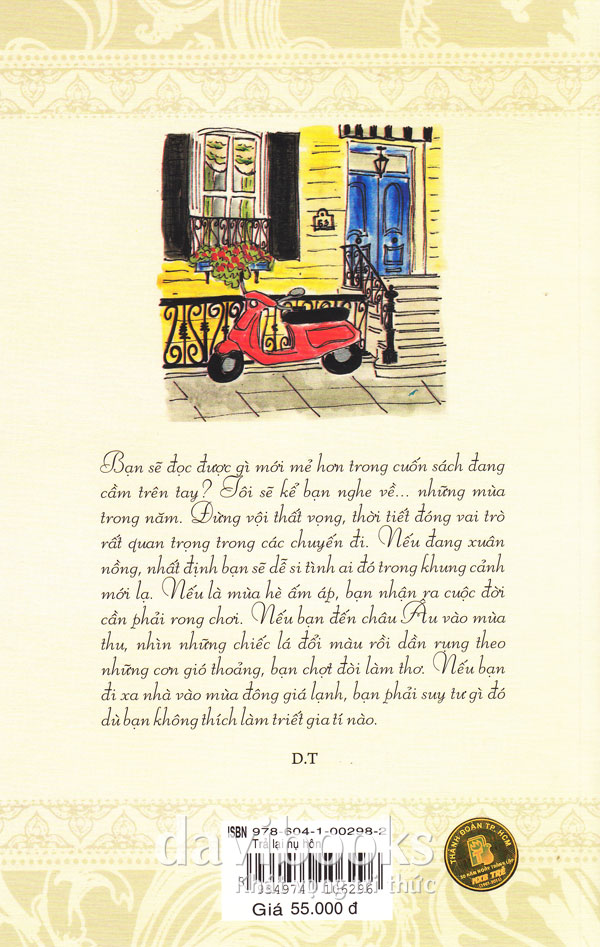 63
Bạn sẽ đọc được gì mới mẻ hơn trong cuốn sách đang
cầm trên tay? Tôi sẽ kể bạn nghe về... những mùa
trong năm. Đừng vội thất vọng, thời tiết đóng vai trò
rất quan trọng trong các chuyến đi. Nếu đang xuân
nồng, nhất định bạn sẽ dễ si tình ai đó trong khung cảnh
mới lạ. Nếu là mùa hè ấm áp, bạn nhận ra cuộc đời
cần phải rong chơi. Nếu bạn đến châu Âu vào mùa
thu, nhìn những chiếc lá đổi màu rồi dần rụng theo
những cơn gió thoảng, bạn chợt đòi làm thơ. Nếu bạn
đi xa nhà vào mùa đông giá lạnh, bạn phải suy tư gì đó
dù bạn không thích làm triết gia tí nào.
D.T
ISBN 978-604-1-00298-2
Trả lại nụ hôn
davibooks
thức
Giá 55.000 đ
THÀNH ĐOÀN TP. HCM
50 NĂM NGÀY THÀNH LẬP
NXB TRẺ